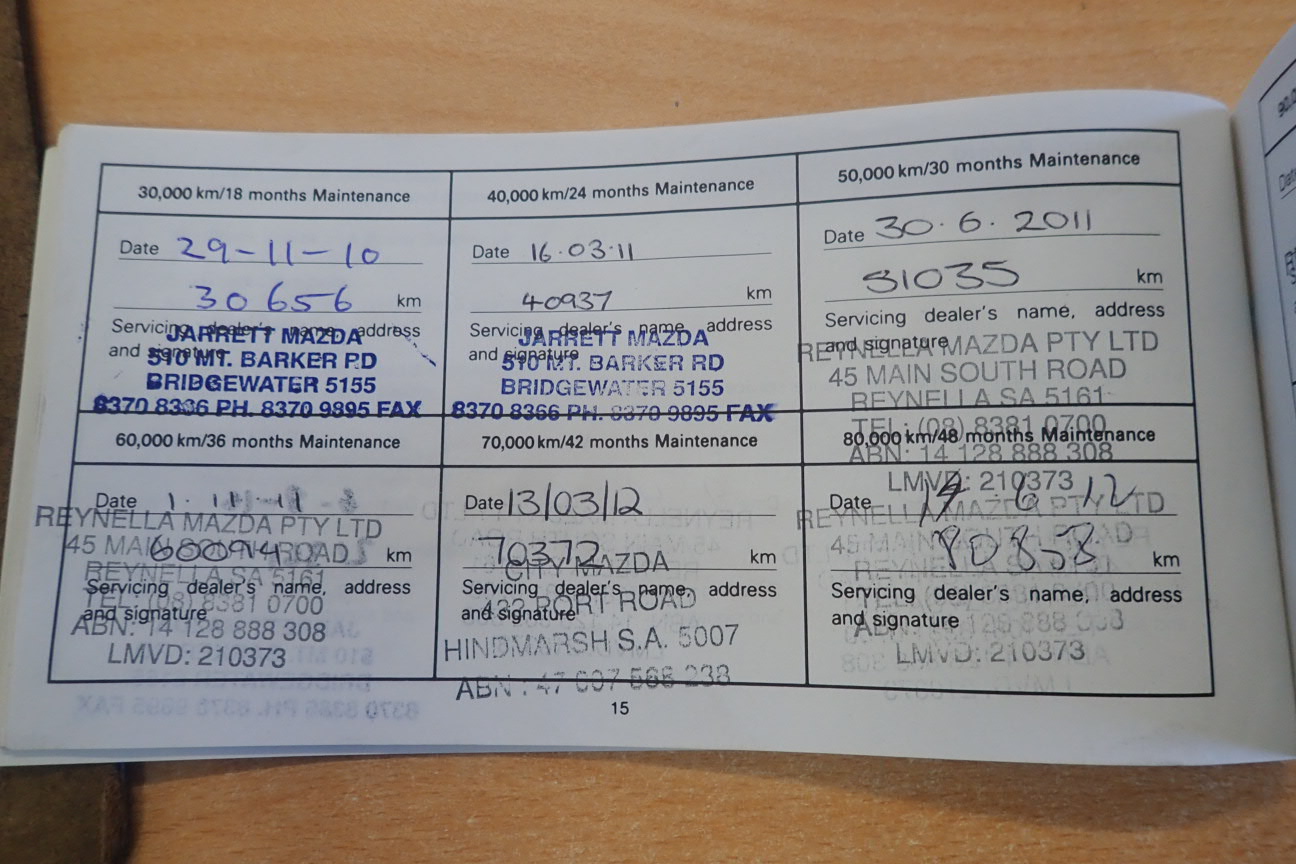 30,000 km/18 months Maintenance
Date 29-11-10
30656 km
Servicing dealer's name, address
and signature
JARRETT MAZDA
510 MT. BARKER RD
BRIDGEWATER 5155
8370 8366 PH. 8370 9895 FAX
40,000 km/24 months Maintenance
Date 16.03.11
40937 km
Servicing dealer's name, address
and signature
JARRETT MAZDA
510 MT. BARKER RD
BRIDGEWATER 5155
8370 8366 PH. 8370 9895 FAX
50,000 km/30 months Maintenance
Date 30.6.2011
51035 km
Servicing dealer's name, address
and signature
REYNELLA MAZDA PTY LTD
45 MAIN SOUTH ROAD
REYNELLA SA 5161
TEL: (08) 8381 0700
ABN: 14 128 888 308
LMVD: 210373
60,000 km/36 months Maintenance
Date 1.11.11
km
Servicing dealer's name, address
and signature
REYNELLA MAZDA PTY LTD
45 MAIN ROAD
REYNELLA SA 5161
TEL: (08) 8381 0700
ABN: 14 128 888 308
LMVD: 210373
70,000 km/42 months Maintenance
Date 13/03/12
70372 km
Servicing dealer's name, address
and signature
CITY MAZDA
PORT ROAD
HINDMARSH S.A. 5007
ABN:
80,000 km/48 months Maintenance
Date 6 12
km
Servicing dealer's name, address
and signature
REYNELLA MAZDA PTY LTD
45 MAIN SOUTH ROAD
REYNELLA SA 5161
ABN: 14 128 888 308
LMVD: 210373
15